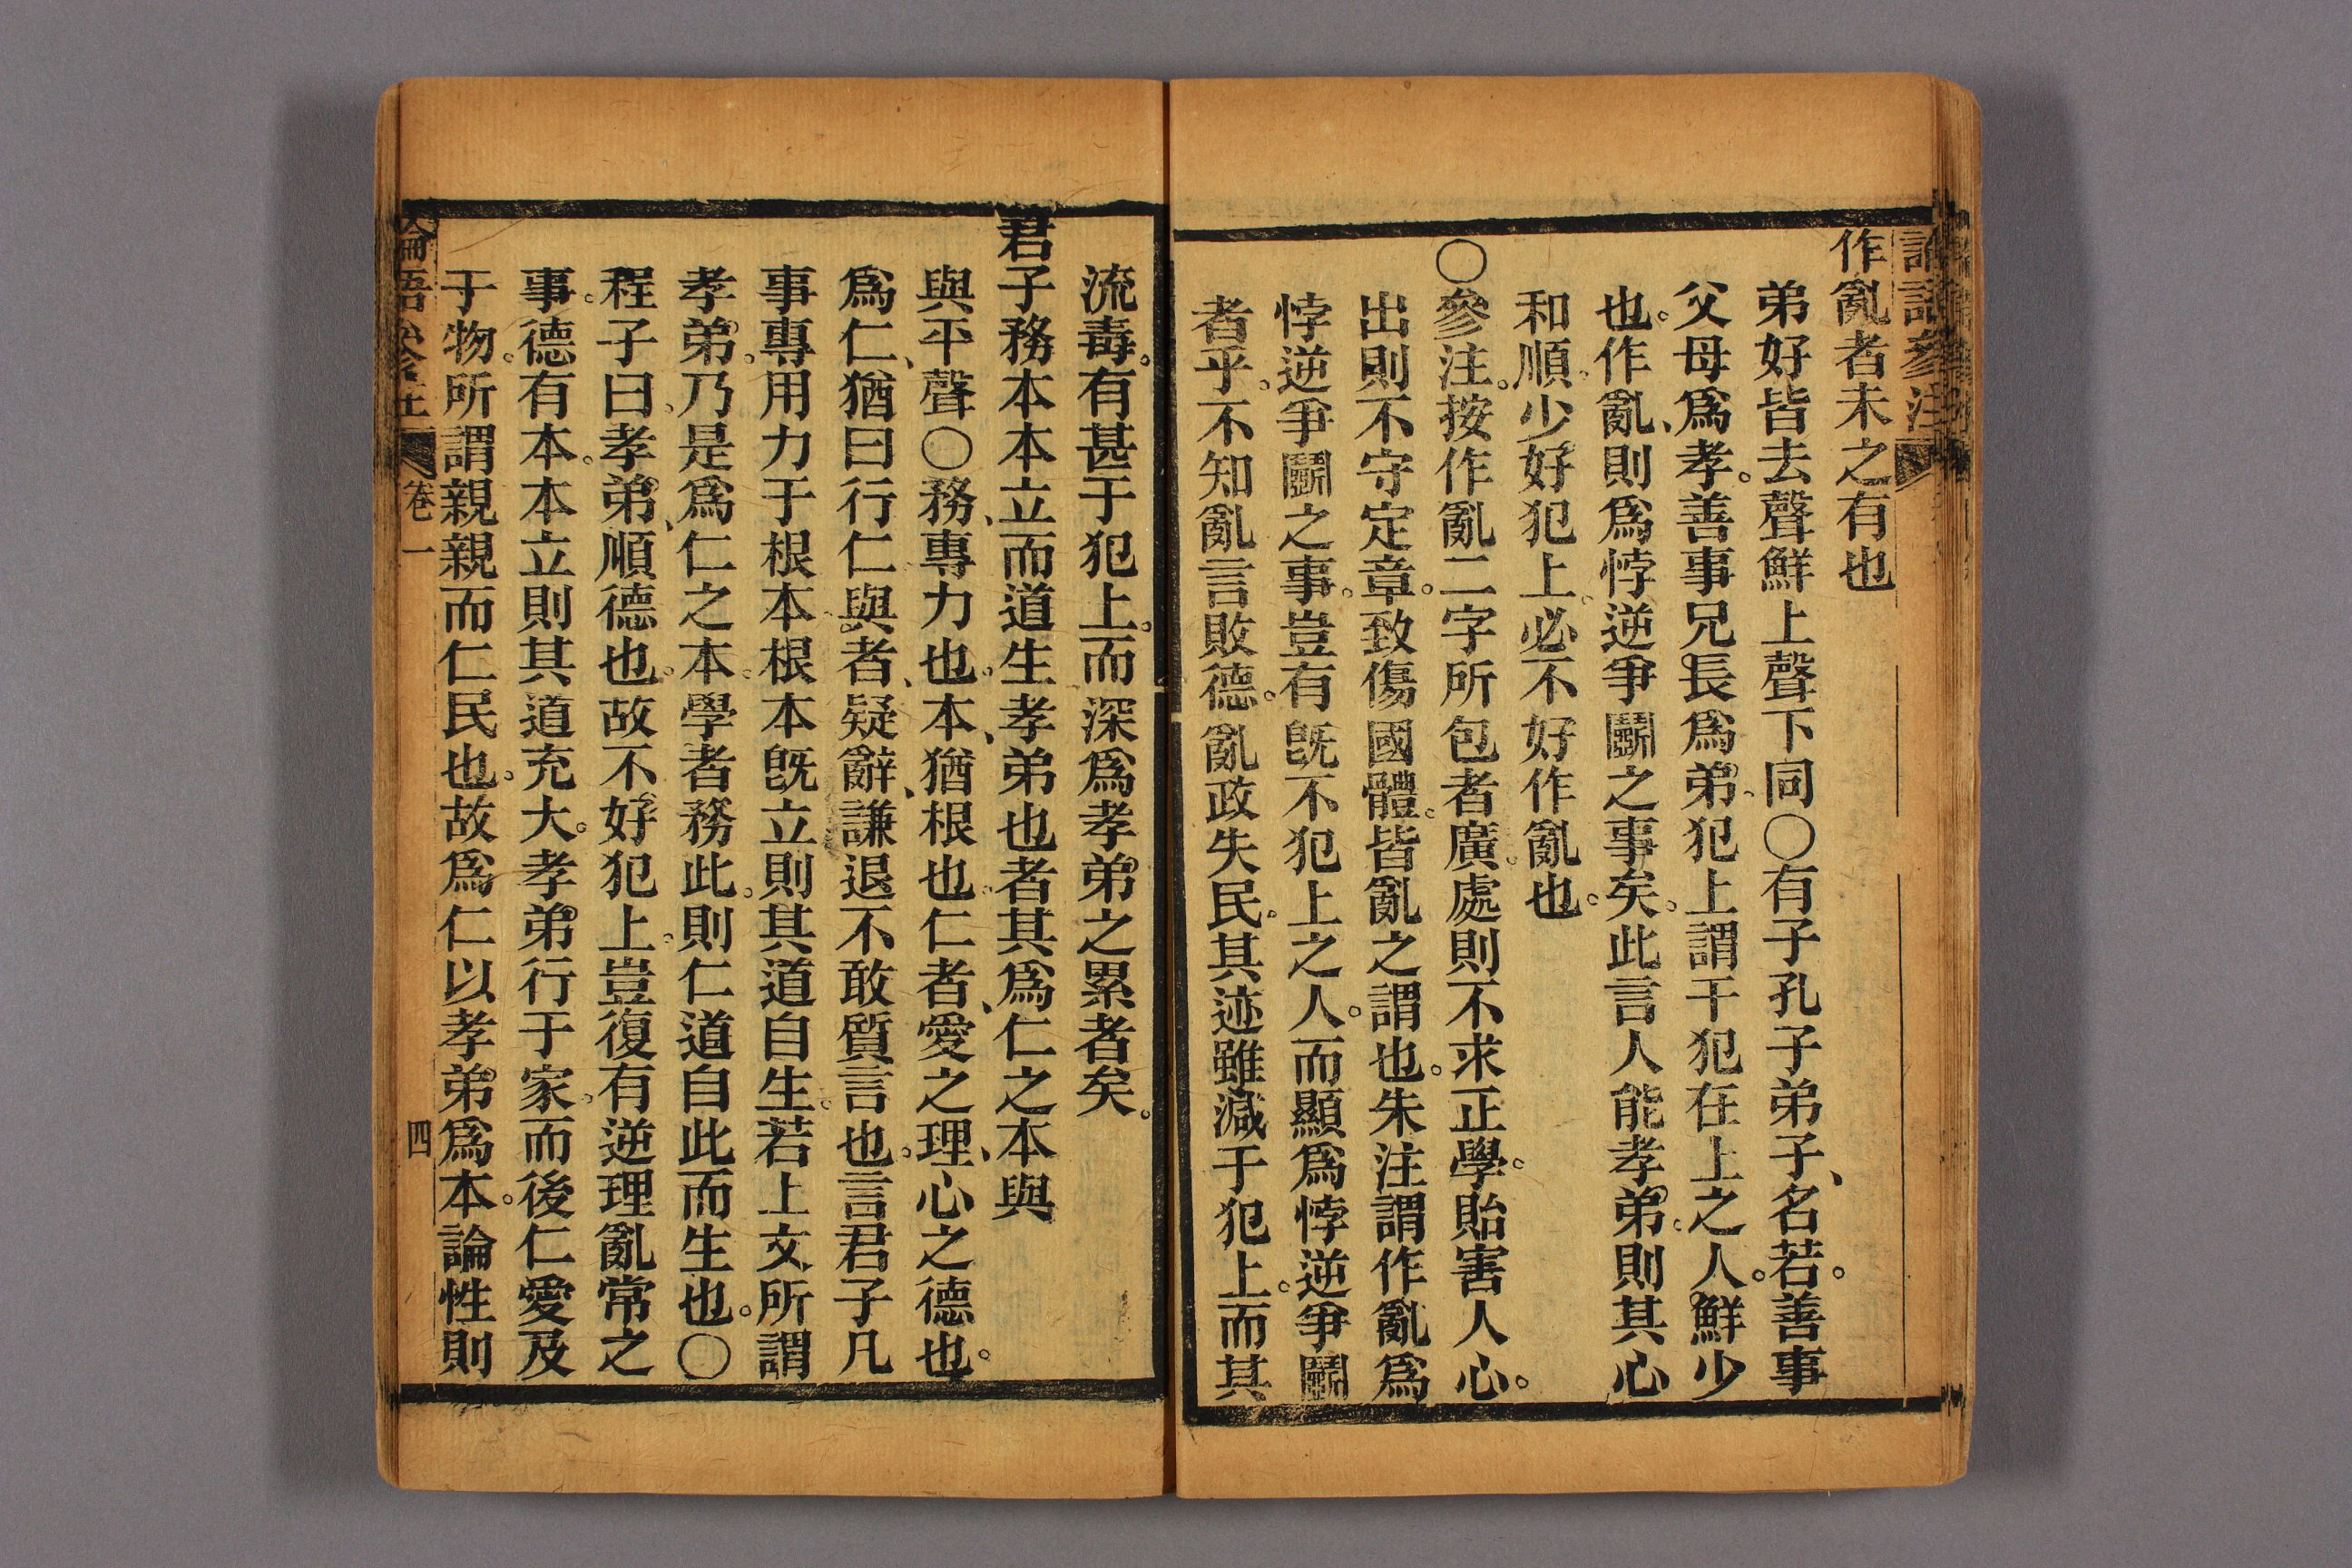 作亂者未之有也
弟好皆去聲鮮上聲下同〇有子孔子弟子、名若。善事
父母爲孝。善事兄長爲弟。犯上謂干犯在上之人。鮮少
也。作亂、則爲悖逆爭鬬之事矣。此言人能孝弟。則其心
和順。少好犯上。必不好作亂也。
〇參注。按作亂二字所包者廣。處則不求正學。貽害人心。
出則不守定章。致傷國體。皆亂之謂也。朱注謂作亂爲
悖逆爭鬬之事。豈有旣不犯上之人。而顯爲悖逆爭鬬
者乎。不知亂言敗德。亂政失民。其迹雖減于犯上。而其
流毒。有甚于犯上。而深爲孝弟之累者矣。
君子務本本立而道生孝弟也者其爲仁之本與
與平聲〇務、專力也。本、猶根也。仁者、愛之理、心之德也。
爲仁、猶曰行仁。與者、疑辭、謙退不敢質言也。言君子凡
事專用力于根本。根本旣立。則其道自生。若上文所謂
孝弟。乃是爲仁之本。學者務此。則仁道自此而生也。〇
程子曰。孝弟、順德也。故不好犯上。豈復有逆理亂常之
事。德有本。本立則其道充大。孝弟行于家。而後仁愛及
于物。所謂親親而仁民也。故爲仁以孝弟爲本。論性則
論語參注 卷一 四